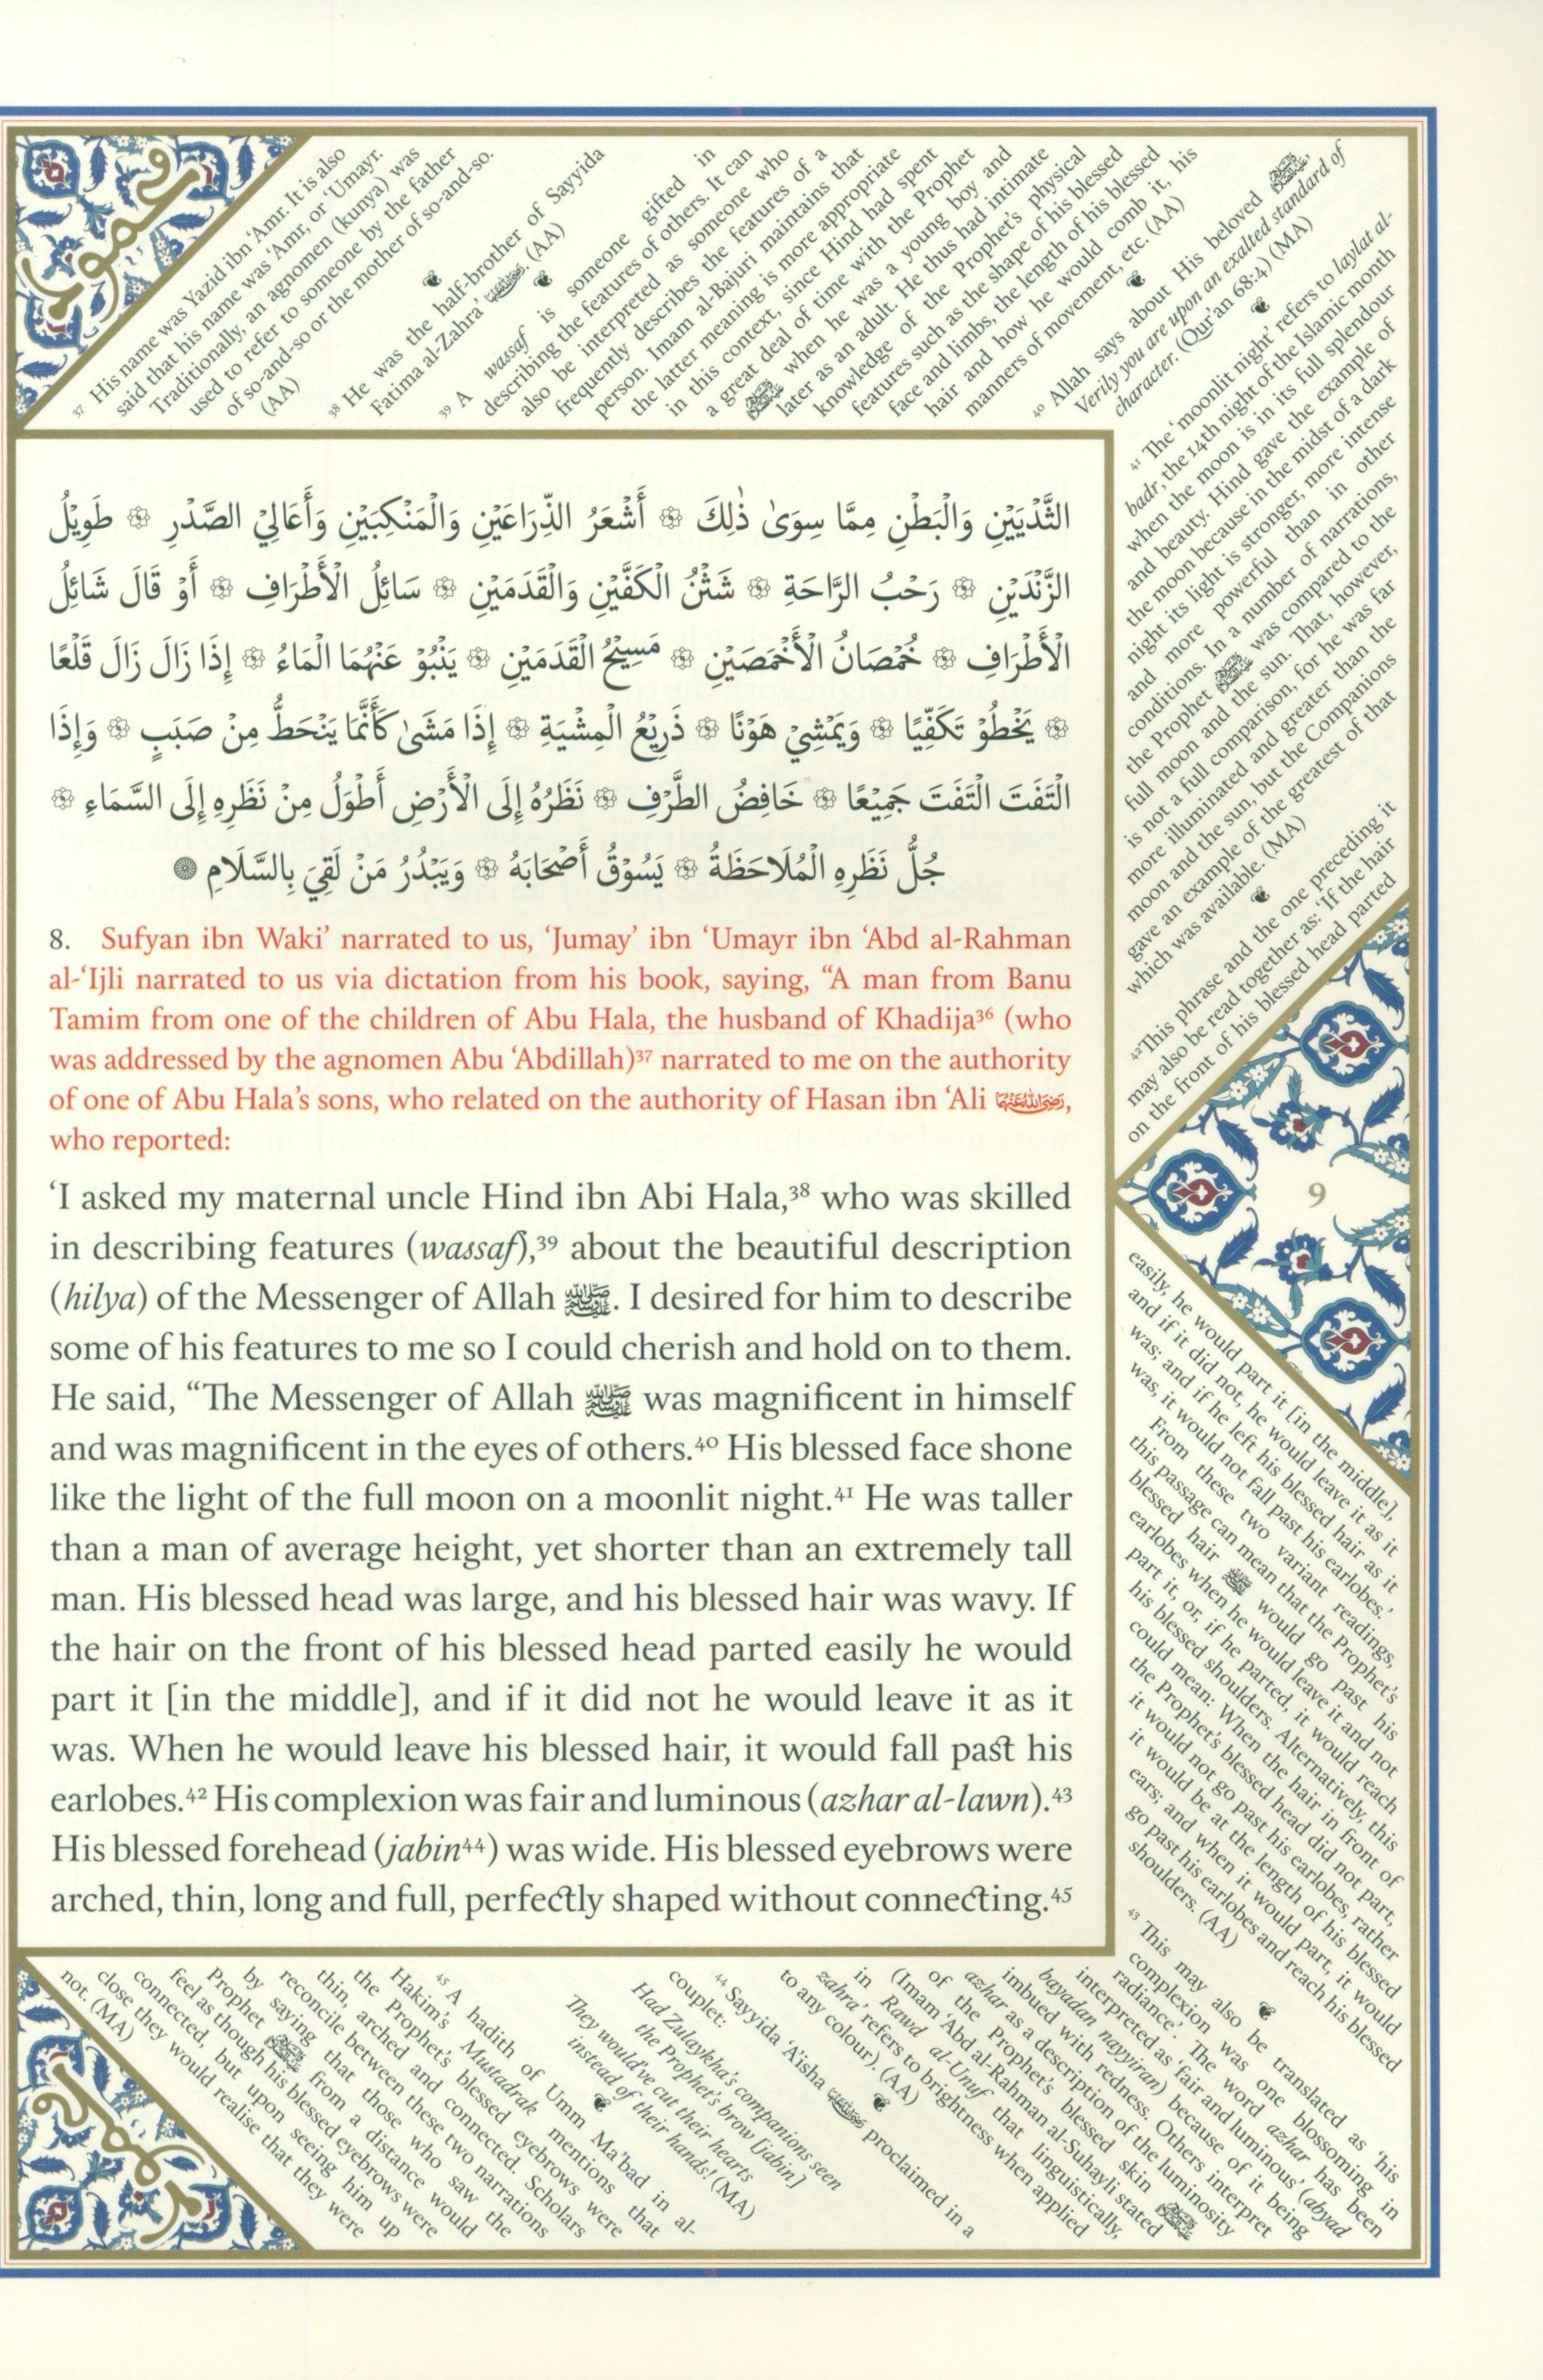 الثَّدْيَيْنِ وَالْبَطْنِ مِمَّا سِوَىٰ ذٰلِكَ ۞ أَشْعَرُ الذِّرَاعَيْنِ وَالْمَنْكِبَيْنِ وَأَعَالِيْ الصَّدْرِ ۞ طَوِيْلُ
الزَّنْدَيْنِ ۞ رَحْبُ الرَّاحَةِ ۞ شَثْنُ الْكَفَّيْنِ وَالْقَدَمَيْنِ ۞ سَائِلُ الْأَطْرَافِ ۞ أَوْ قَالَ شَائِلُ
الْأَطْرَافِ ۞ خُمْصَانُ الْأَخْمَصَيْنِ ۞ مَسِيْحُ الْقَدَمَيْنِ ۞ يَنْبُوْ عَنْهُمَا الْمَاءُ ۞ إِذَا زَالَ زَالَ قَلْعًا
۞ يَخْطُوْ تَكَفِّيًا ۞ وَيَمْشِيْ هَوْنًا ۞ ذَرِيْعُ الْمِشْيَةِ ۞ إِذَا مَشَىٰ كَأَنَّمَا يَنْحَطُّ مِنْ صَبَبٍ ۞ وَإِذَا
الْتَفَتَ الْتَفَتَ جَمِيْعًا ۞ خَافِضُ الطَّرْفِ ۞ نَظَرُهُ إِلَى الْأَرْضِ أَطْوَلُ مِنْ نَظَرِهِ إِلَى السَّمَاءِ ۞
جُلُّ نَظَرِهِ الْمُلَاحَظَةُ ۞ يَسُوْقُ أَصْحَابَهُ ۞ وَيَبْدُرُ مَنْ لَقِيَ بِالسَّلَامِ
8. Sufyan ibn Waki’ narrated to us, ‘Jumay’ ibn ‘Umayr ibn ‘Abd al-Rahman
al-‘Ijli narrated to us via dictation from his book, saying, “A man from Banu
Tamim from one of the children of Abu Hala, the husband of Khadija³⁶ (who
was addressed by the agnomen Abu ‘Abdillah)³⁷ narrated to me on the authority
of one of Abu Hala’s sons, who related on the authority of Hasan ibn ‘Ali رَضِيَ اللهُ عَنْهُمَا,
who reported:
‘I asked my maternal uncle Hind ibn Abi Hala,³⁸ who was skilled
in describing features (wassaf),³⁹ about the beautiful description
(hilya) of the Messenger of Allah ﷺ. I desired for him to describe
some of his features to me so I could cherish and hold on to them.
He said, “The Messenger of Allah ﷺ was magnificent in himself
and was magnificent in the eyes of others.⁴⁰ His blessed face shone
like the light of the full moon on a moonlit night.⁴¹ He was taller
than a man of average height, yet shorter than an extremely tall
man. His blessed head was large, and his blessed hair was wavy. If
the hair on the front of his blessed head parted easily he would
part it [in the middle], and if it did not he would leave it as it
was. When he would leave his blessed hair, it would fall past his
earlobes.⁴² His complexion was fair and luminous (azhar al-lawn).⁴³
His blessed forehead (jabin⁴⁴) was wide. His blessed eyebrows were
arched, thin, long and full, perfectly shaped without connecting.⁴⁵
³⁷ His name was Yazid ibn ‘Amr. It is also
said that his name was ‘Amr, or ‘Umayr.
Traditionally, an agnomen (kunya) was
used to refer to someone by the father
of so-and-so or the mother of so-and-so.
(AA)
³⁸ He was the half-brother of Sayyida
Fatima al-Zahra’ . (AA)
³⁹ A wassaf is someone gifted in
describing the features of others. It can
also be interpreted as someone who
frequently describes the features of a
person. Imam al-Bajuri maintains that
the latter meaning is more appropriate
in this context, since Hind had spent
a great deal of time with the Prophet
ﷺ when he was a young boy and
later as an adult. He thus had intimate
knowledge of the Prophet’s physical
features such as the shape of his blessed
face and limbs, the length of his blessed
hair and how he would comb it, his
manners of movement, etc. (AA)
⁴⁰ Allah says about His beloved ﷺ,
Verily you are upon an exalted standard of
character. (Qur’an 68:4) (MA)
⁴¹ The ‘moonlit night’ refers to laylat al-
badr, the 14th night of the Islamic month
when the moon is in its full splendour
and beauty. Hind gave the example of
the moon because in the midst of a dark
night its light is stronger, more intense
and more powerful than in other
conditions. In a number of narrations,
the Prophet ﷺ was compared to the
full moon and the sun. That, however,
is not a full comparison, for he was far
more illuminated and greater than the
moon and the sun, but the Companions
gave an example of the greatest of that
which was available. (MA)
⁴² This phrase and the one preceding it
may also be read together as: ‘If the hair
on the front of his blessed head parted
9
easily, he would part it [in the middle],
and if it did not, he would leave it as it
was; and if he left his blessed hair as it
was, it would not fall past his earlobes.’
From these two variant readings,
this passage can mean that the Prophet’s
blessed hair ﷺ would go past his
earlobes when he would leave it and not
part it, or, if he parted, it would reach
his blessed shoulders. Alternatively, this
could mean: When the hair in front of
the Prophet’s blessed head did not part,
it would not go past his earlobes, rather
it would be at the length of his blessed
ears; and when it would part, it would
go past his earlobes and reach his blessed
shoulders. (AA)
⁴³ This may also be translated as ‘his
complexion was one blossoming in
radiance’. The word azhar has been
interpreted as ‘fair and luminous’ (abyad
bayadan nayyiran) because of it being
imbued with redness. Others interpret
azhar as a description of the luminosity
of the Prophet’s blessed skin ﷺ
(Imam ‘Abd al-Rahman al-Suhayli stated
in Rawd al-Unuf that linguistically,
zahra’ refers to brightness when applied
to any colour). (AA)
⁴⁴ Sayyida ‘A’isha proclaimed in a
couplet:
Had Zulaykha’s companions seen
the Prophet’s brow [jabin]
They would’ve cut their hearts
instead of their hands! (MA)
⁴⁵ A hadith of Umm Ma’bad in al-
Hakim’s Mustadrak mentions that
the Prophet’s blessed eyebrows were
thin, arched and connected. Scholars
reconcile between these two narrations
by saying that those who saw the
Prophet ﷺ from a distance would
feel as though his blessed eyebrows were
connected, but upon seeing him up
close they would realise that they were
not. (MA)